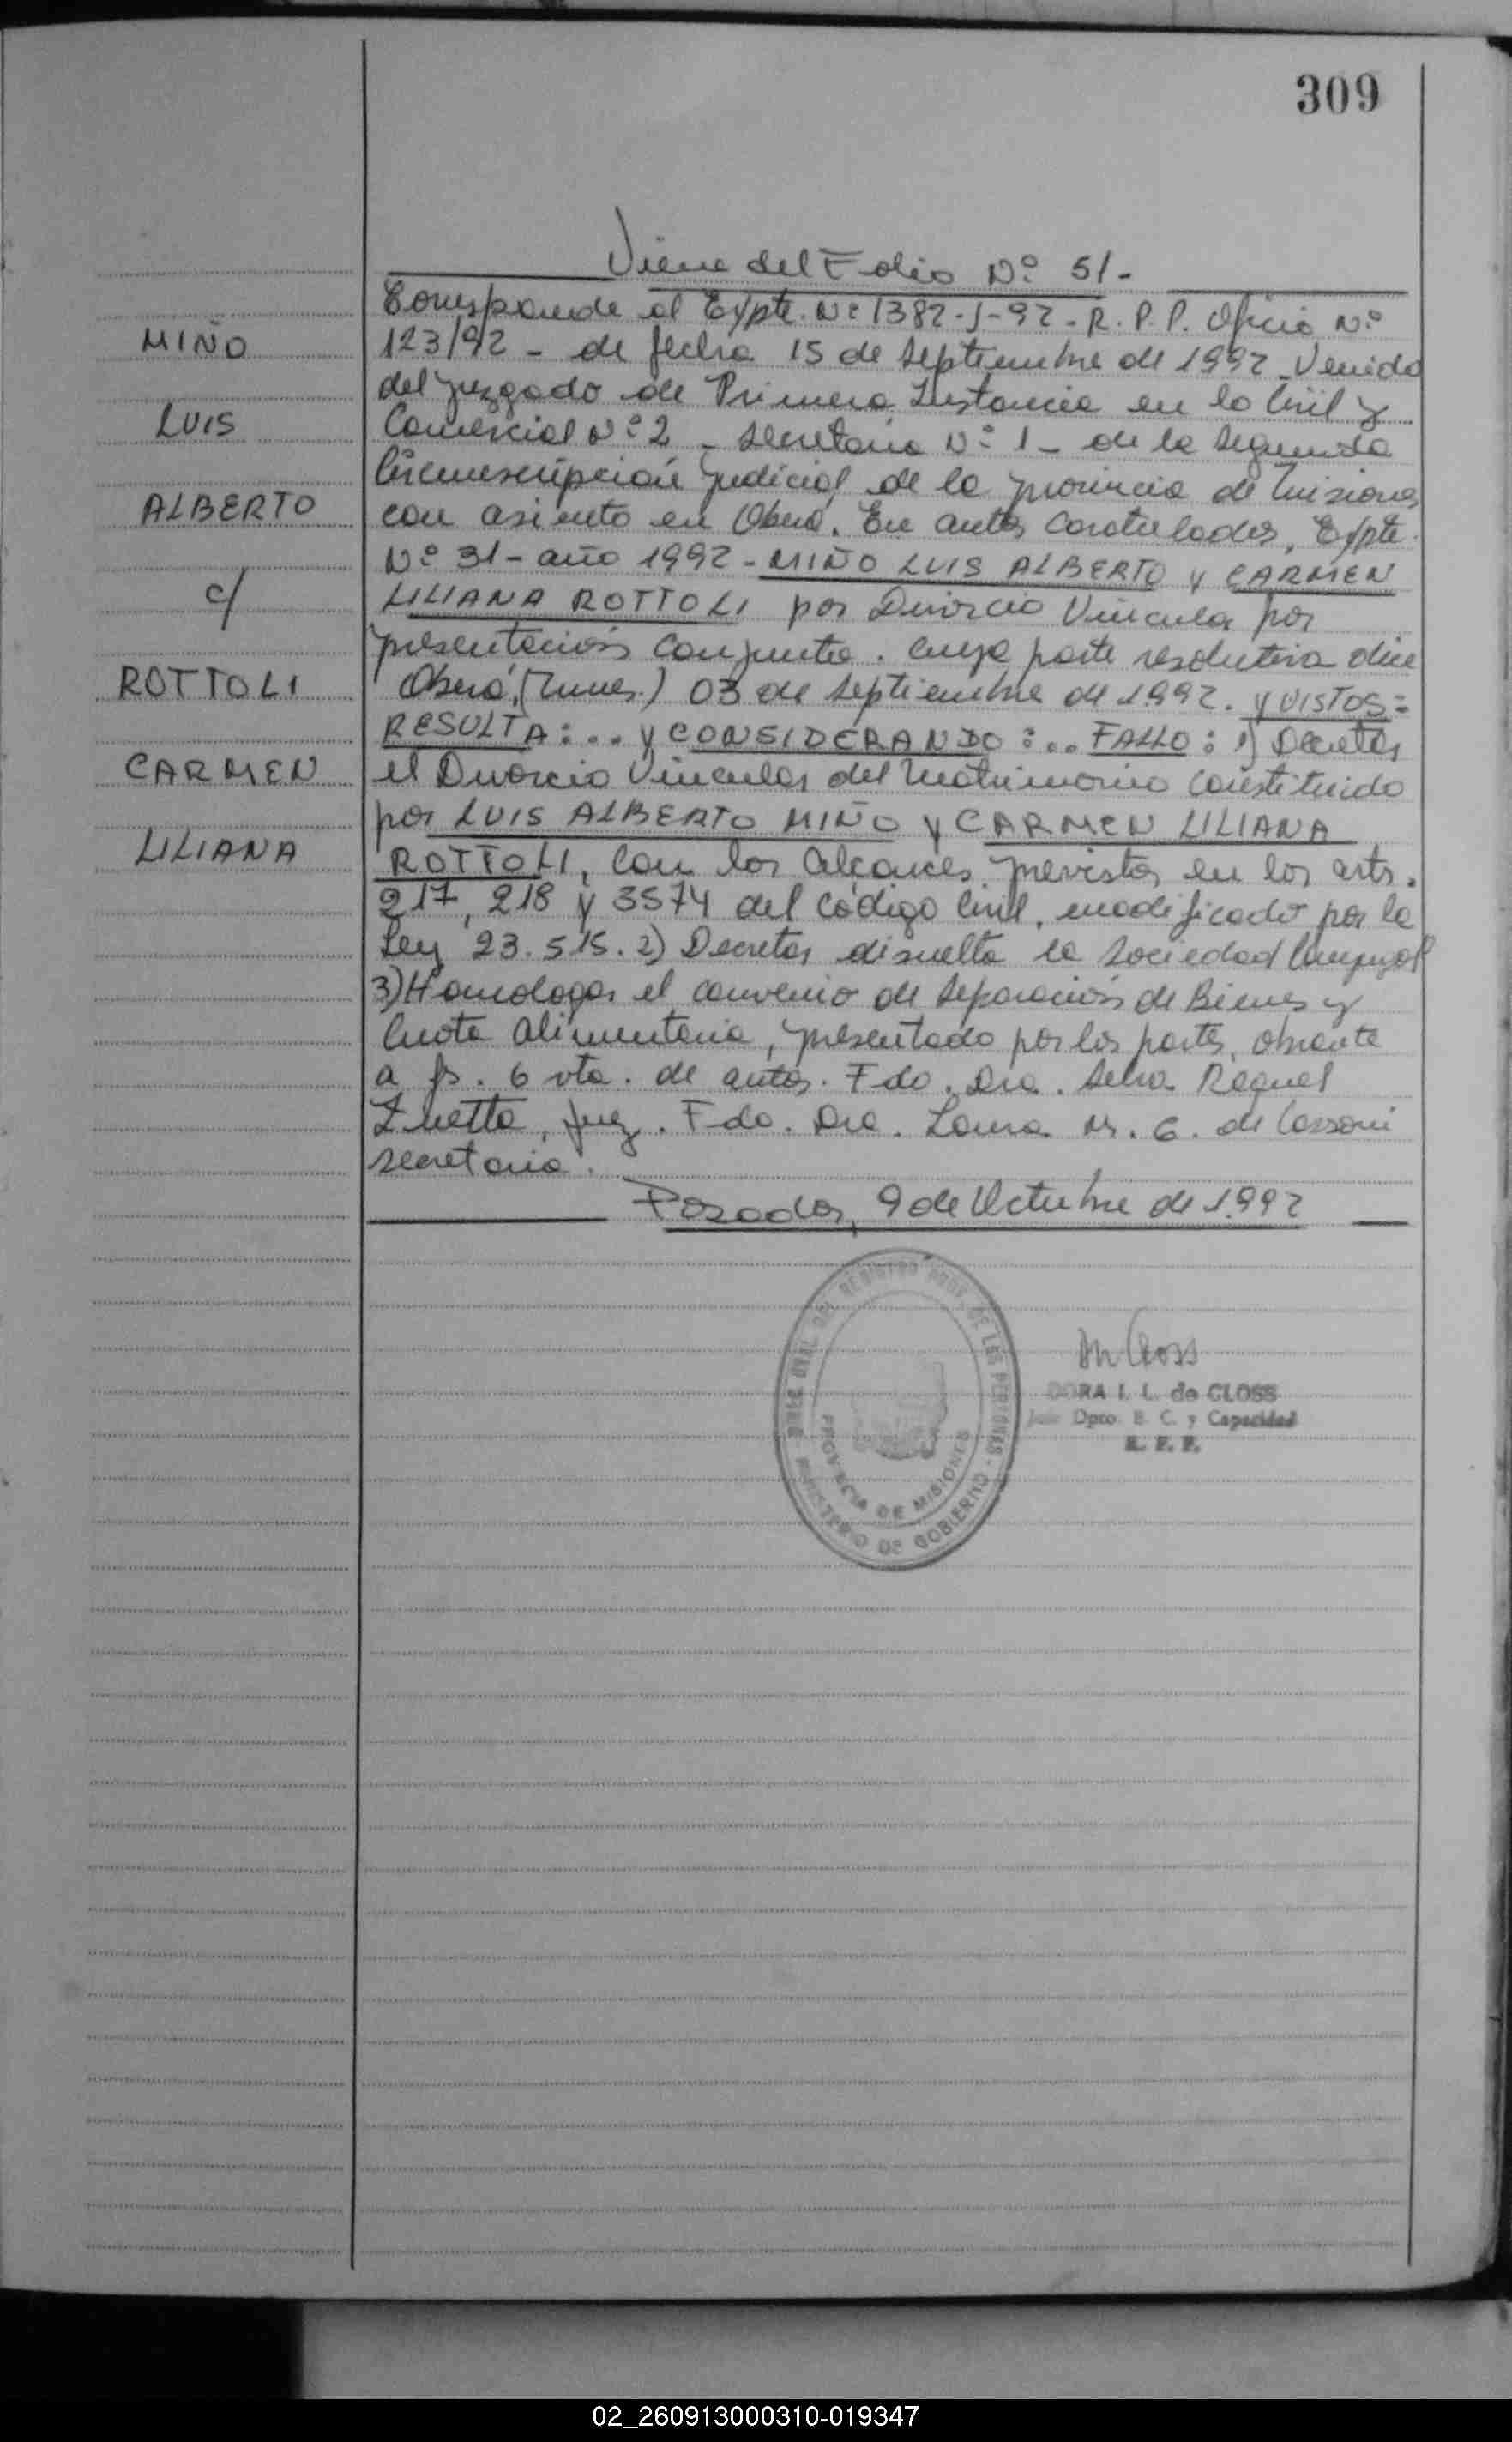 309
Viene del Folio Nº 51-
Corresponde al Expte. Nº 1382-J-92-R.P.P. Oficio Nº
123/92 - de fecha 15 de Septiembre de 1992 - Venido
del Juzgado de Primera Instancia en lo Civil y
Comercial Nº 2 - Secretaria Nº 1 - de la Segunda
Circunscripción Judicial de la provincia de Misiones
con asiento en Oberá. En autos Caratulados, Expte.
Nº 31 - año 1992 - MIÑO LUIS ALBERTO y CARMEN
LILIANA ROTTOLI por Divorcio Vincular por
presentación Conjunta. Cuya parte resolutiva dice
Oberá, 03 de Septiembre de 1992. y VISTOS:
RESULTA:... y CONSIDERANDO:.. FALLO: 1) Decretar
el Divorcio Vincular del Matrimonio Constituido
por LUIS ALBERTO MIÑO y CARMEN LILIANA
ROTTOLI, Con los alcances previstos en los arts.
217, 218 y 3574 del Código Civil, modificado por la
Ley 23.515. 2) Decretar disuelta la Sociedad Conyugal
3) Homologar el convenio de Separación de Bienes y
Cuota Alimentaria, presentado por las partes, obrante
a fs. 6 vta. de autos. Fdo. Dra. Selva Raquel
Juez. Fdo. Dra. Laura M. G. de
Secretaria.
Posadas, 9 de Octubre de 1.992
MIÑO
LUIS
ALBERTO
c/
ROTTOLI
CARMEN
LILIANA
GRAL DEL REGISTRO PROV. DE LAS PERSONAS -
MINISTERIO DE GOBIERNO
PROVINCIA DE MISIONES
DORA I. L. de CLOSS
Jefe Dpto. E. C. y Capacidad
R. P. P.
02_260913000310-019347